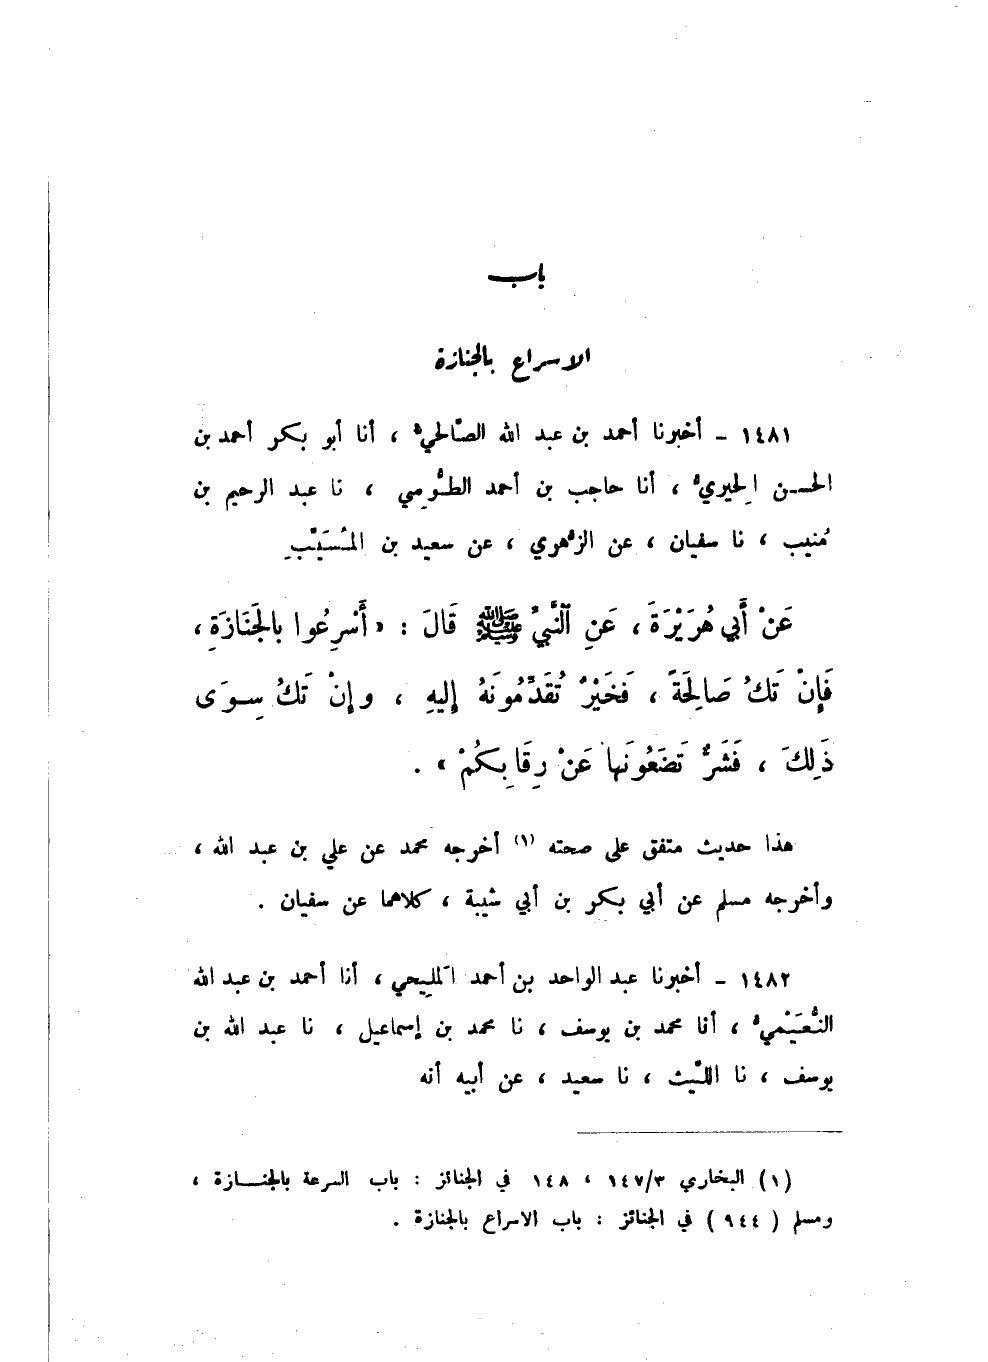 باب
الاسراع بالجنازة
١٤٨١ ـ أخبرنا أحمد بن عبد الله الصَّالحيُّ ، أنا أبو بكر أحمد بن
الحسن الحِيري ، أنا حاجب بن أحمد الطُّوسي ، نا عبد الرحيم بن
مُنيب ، نا سفيان ، عن الزُّهوي ، عن سعيد بن المُسَيَّبِ
عَنْ أَبِي هُرَيْرَةَ ، عَنِ النَّبِيِّ ﷺ قَالَ : « أَسْرِعُوا بالجَنَازَةِ ،
فَإِنْ تَكُ صَالِحَةً ، فَخَيْرٌ تُقَدِّمُونَهُ إِليهِ ، وإنْ تَكُ سِوَى
ذَلِكَ ، فَشَرٌّ تَضَعُونَها عَنْ رِقَابِكُمْ » .
هذا حديث متفق على صحته (١) أخرجه محمد عن علي بن عبد الله ،
وأخرجه مسلم عن أبي بكر بن أبي شيبة ، كلاهما عن سفيان .
١٤٨٢ ـ أخبرنا عبد الواحد بن أحمد المَليحي ، أنا أحمد بن عبد الله
النُّعَيْمي ، أنا محمد بن يوسف ، نا محمد بن إسماعيل ، نا عبد الله بن
يوسف ، نا اللَّيث ، نا سعيد ، عن أبيه أنه
(١) البخاري ١٤٧/٣ ، ١٤٨ في الجنائز : باب السرعة بالجنازة ،
ومسلم ( ٩٤٤ ) في الجنائز : باب الاسراع بالجنازة .